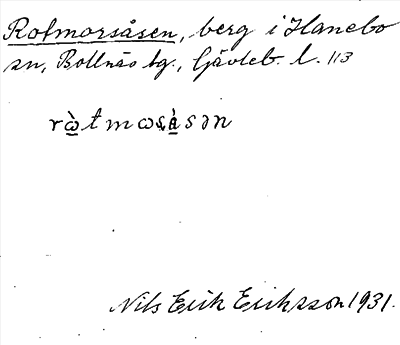 Rotmorsåsen, berg i Hanebo
sn, Bollnäs tg., Gävleb. l. 113
Nils Erik Eriksson 1931.